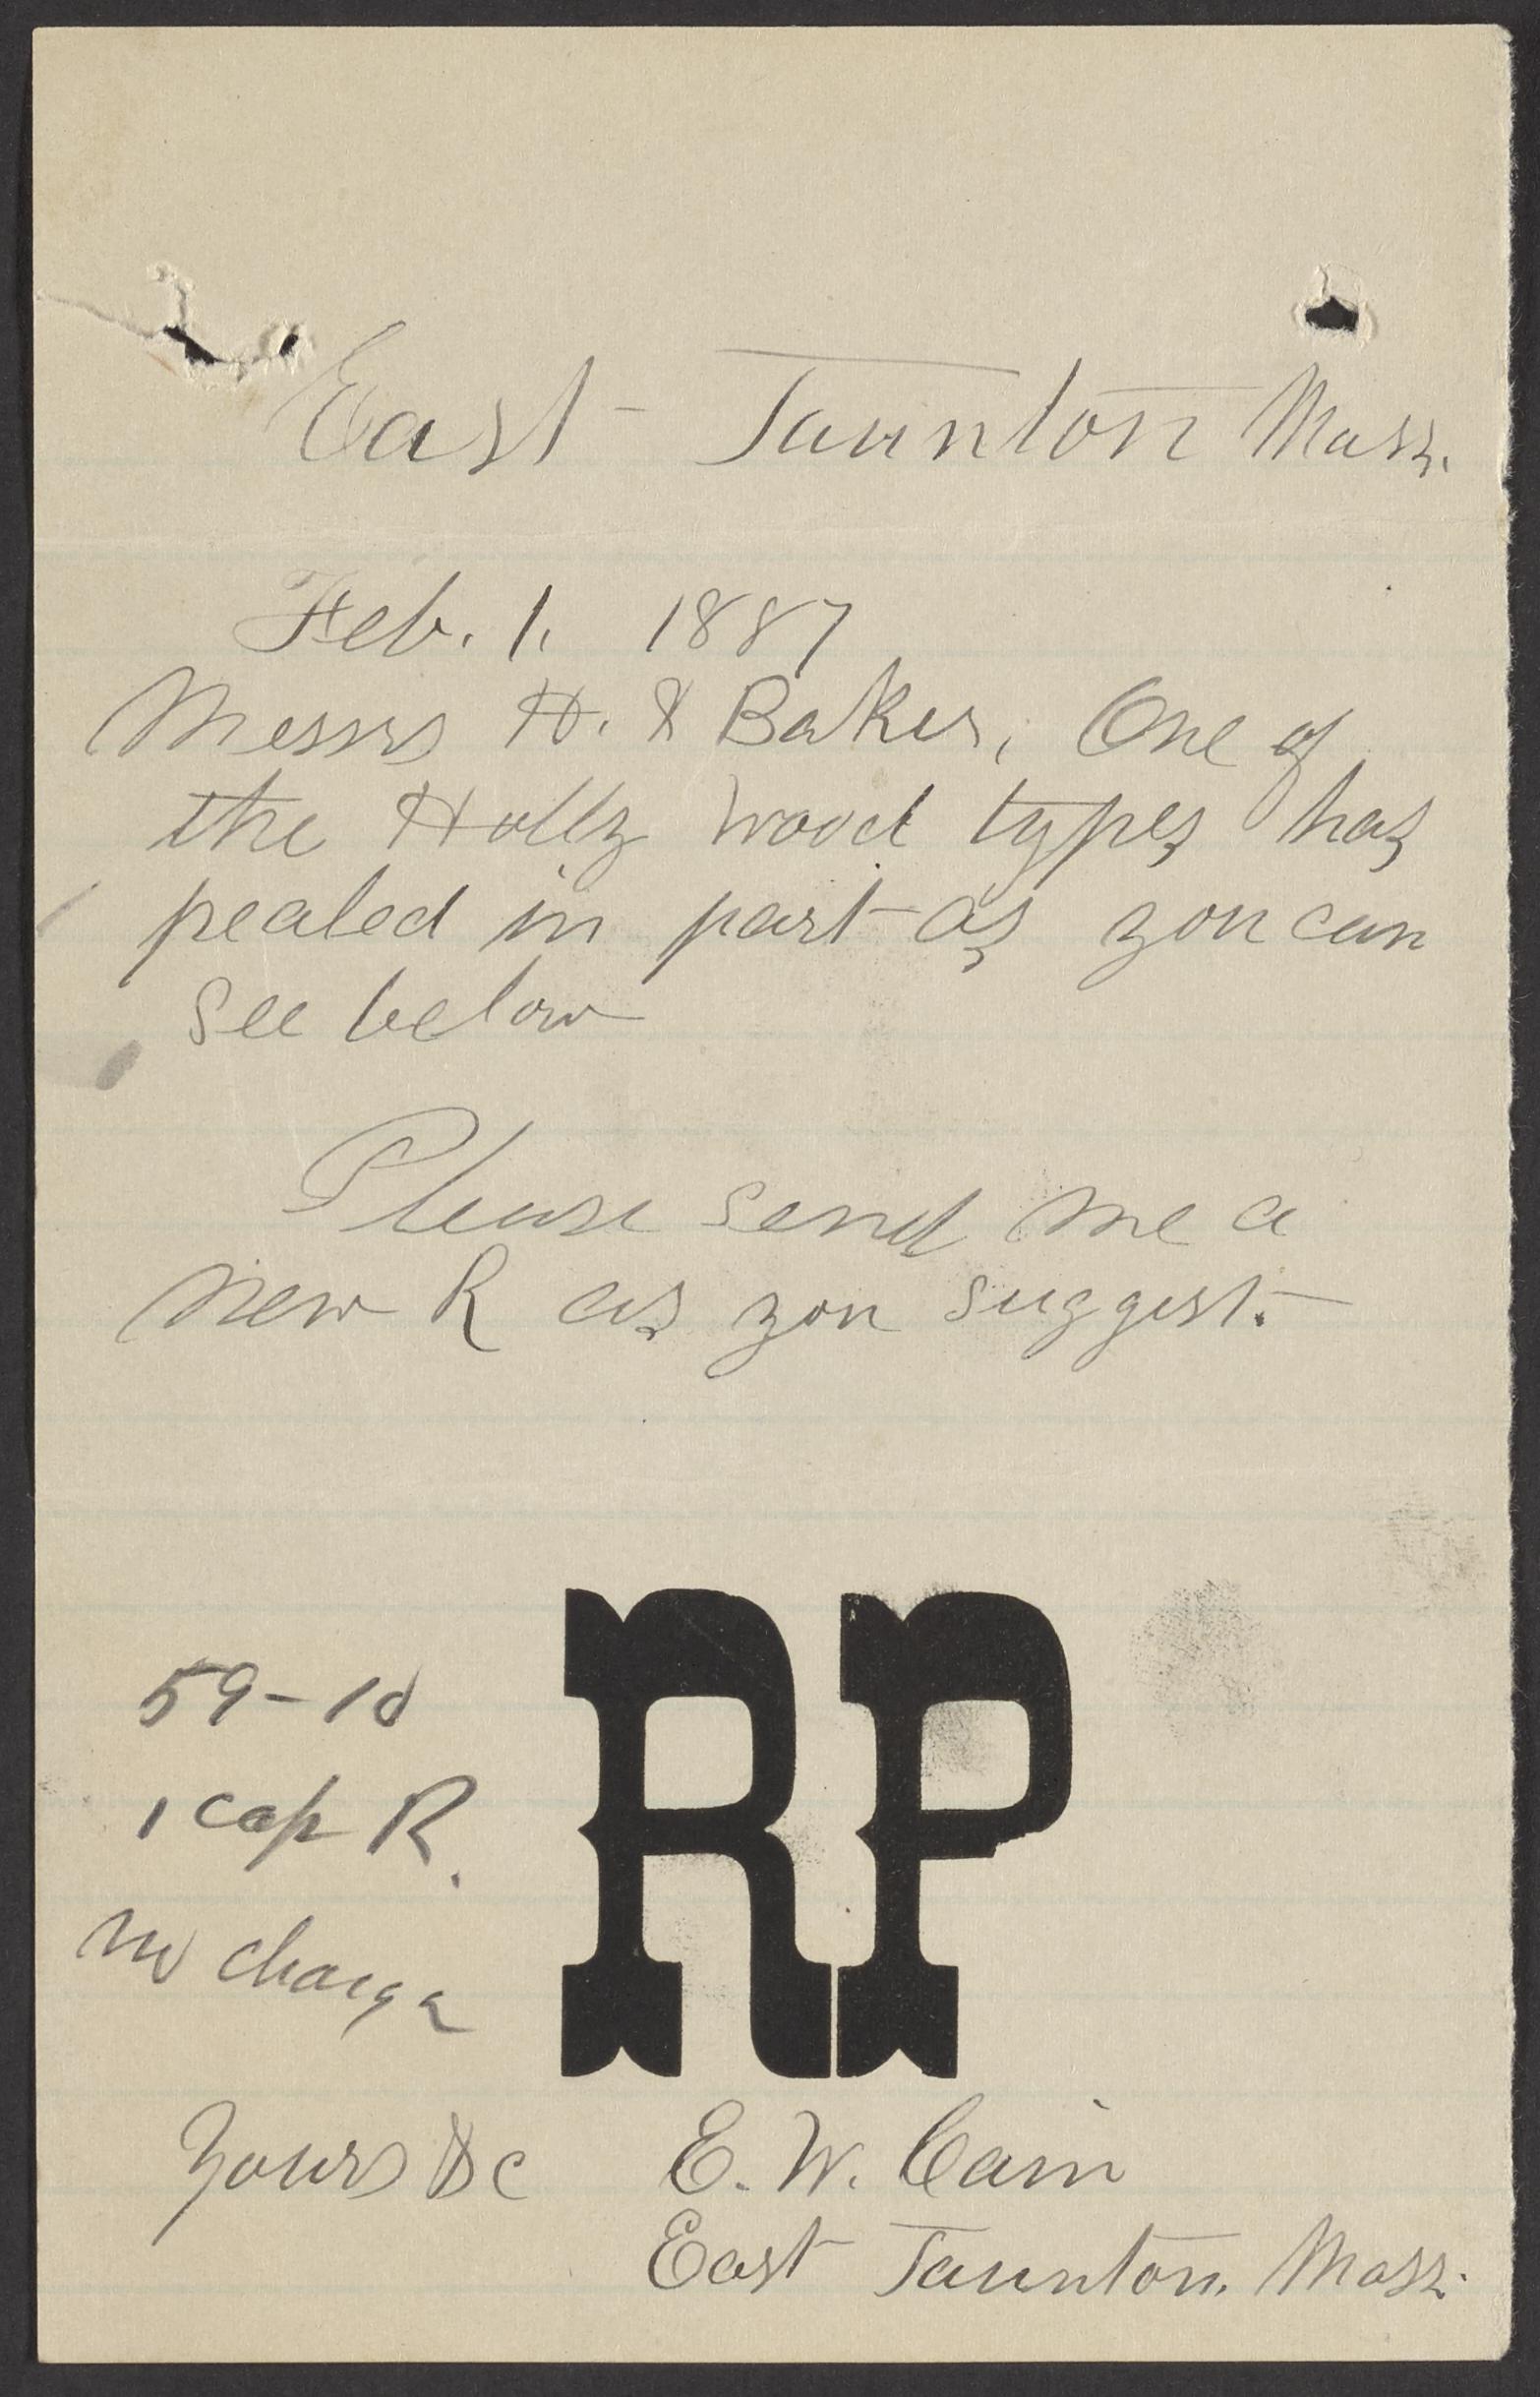 East Taunton Mass.
Feb. 1. 1887
Messrs H. & Baker, One of
the Holly wood types has
pealed in part as you can
see below
Please send me a
new R as you suggest.
RP
59-10
1 cap R.
no charge
Yours &c E. W. Cain
East Taunton. Mass.